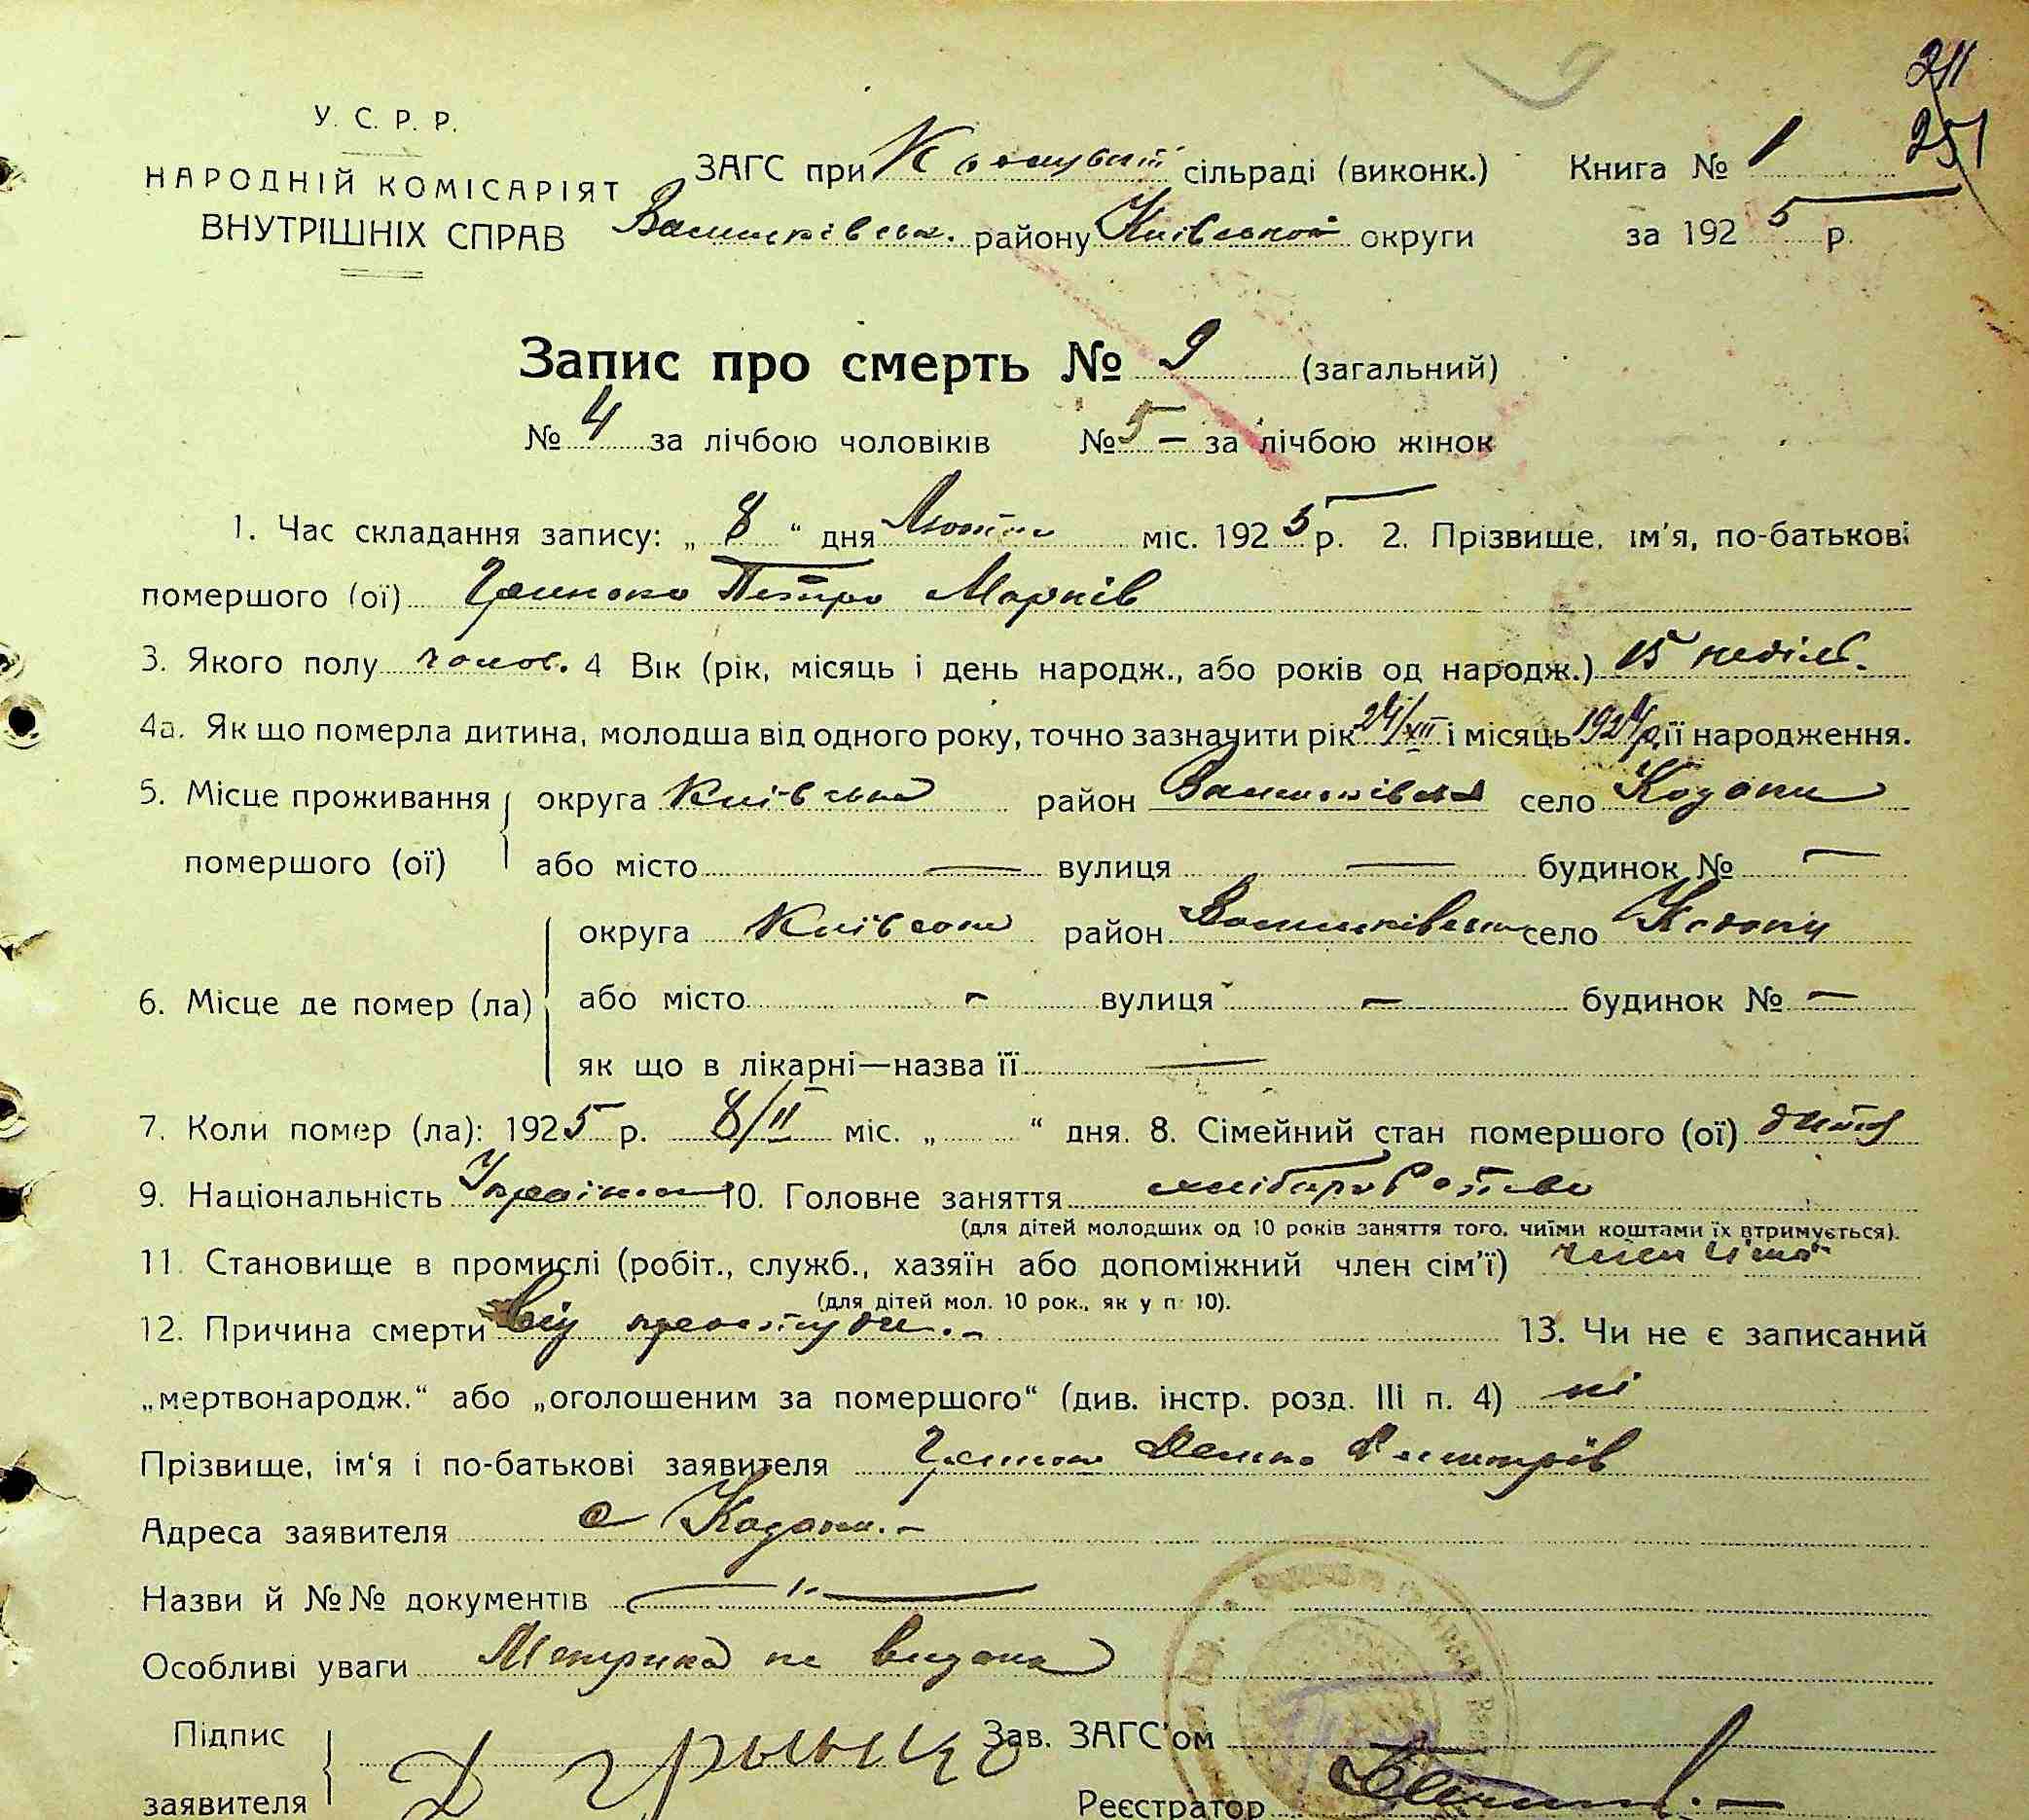 211
251
У. С. Р. Р.
НАРОДНІЙ КОМІСАРІЯТ
ВНУТРІШНІХ СПРАВ
ЗАГС при сільраді (виконк.) Книга № 1
району Київської округи за 1925 р.
Запис про смерть № 9 (загальний)
№ 4 за лічбою чоловіків № 5 — за лічбою жінок
1. Час складання запису: „ 8 “ дня Лютня міс. 1925 р. 2. Прізвище, ім'я, по-батькові
помершого (ої) Петро Марків
3. Якого полу чолов. 4 Вік (рік, місяць і день народж., або років од народж.) 15 неділь.
4а. Як що померла дитина, молодша від одного року, точно зазначити рік 24/XII і місяць 1924 р її народження.
5. Місце проживання округа Київська район село Кодаки
помершого (ої) або місто — вулиця — будинок № —
округа Київська район село Кодаки
6. Місце де помер (ла) або місто - вулиця — будинок № —
як що в лікарні—назва її —
7. Коли помер (ла): 1925 р. 8/II міс. „ “ дня. 8. Сімейний стан помершого (ої) дитя
9. Національність 10. Головне заняття хліборобство
(для дітей молодших од 10 років заняття того, чиїми коштами їх втримується).
11. Становище в промислі (робіт., служб., хазяїн або допоміжний член сім'ї) член сімї
(для дітей мол. 10 рок., як у п. 10).
12. Причина смерти від простуди.- 13. Чи не є записаний
„мертвонародж.“ або „оголошеним за помершого“ (див. інстр. розд. III п. 4) ні
Прізвище, ім'я і по-батькові заявителя
Адреса заявителя с Кодаки.-
Назви й №№ документів —"—
Особливі уваги Метрика не видана
Підпис
заявителя
Зав. ЗАГС'ом
Реєстратор